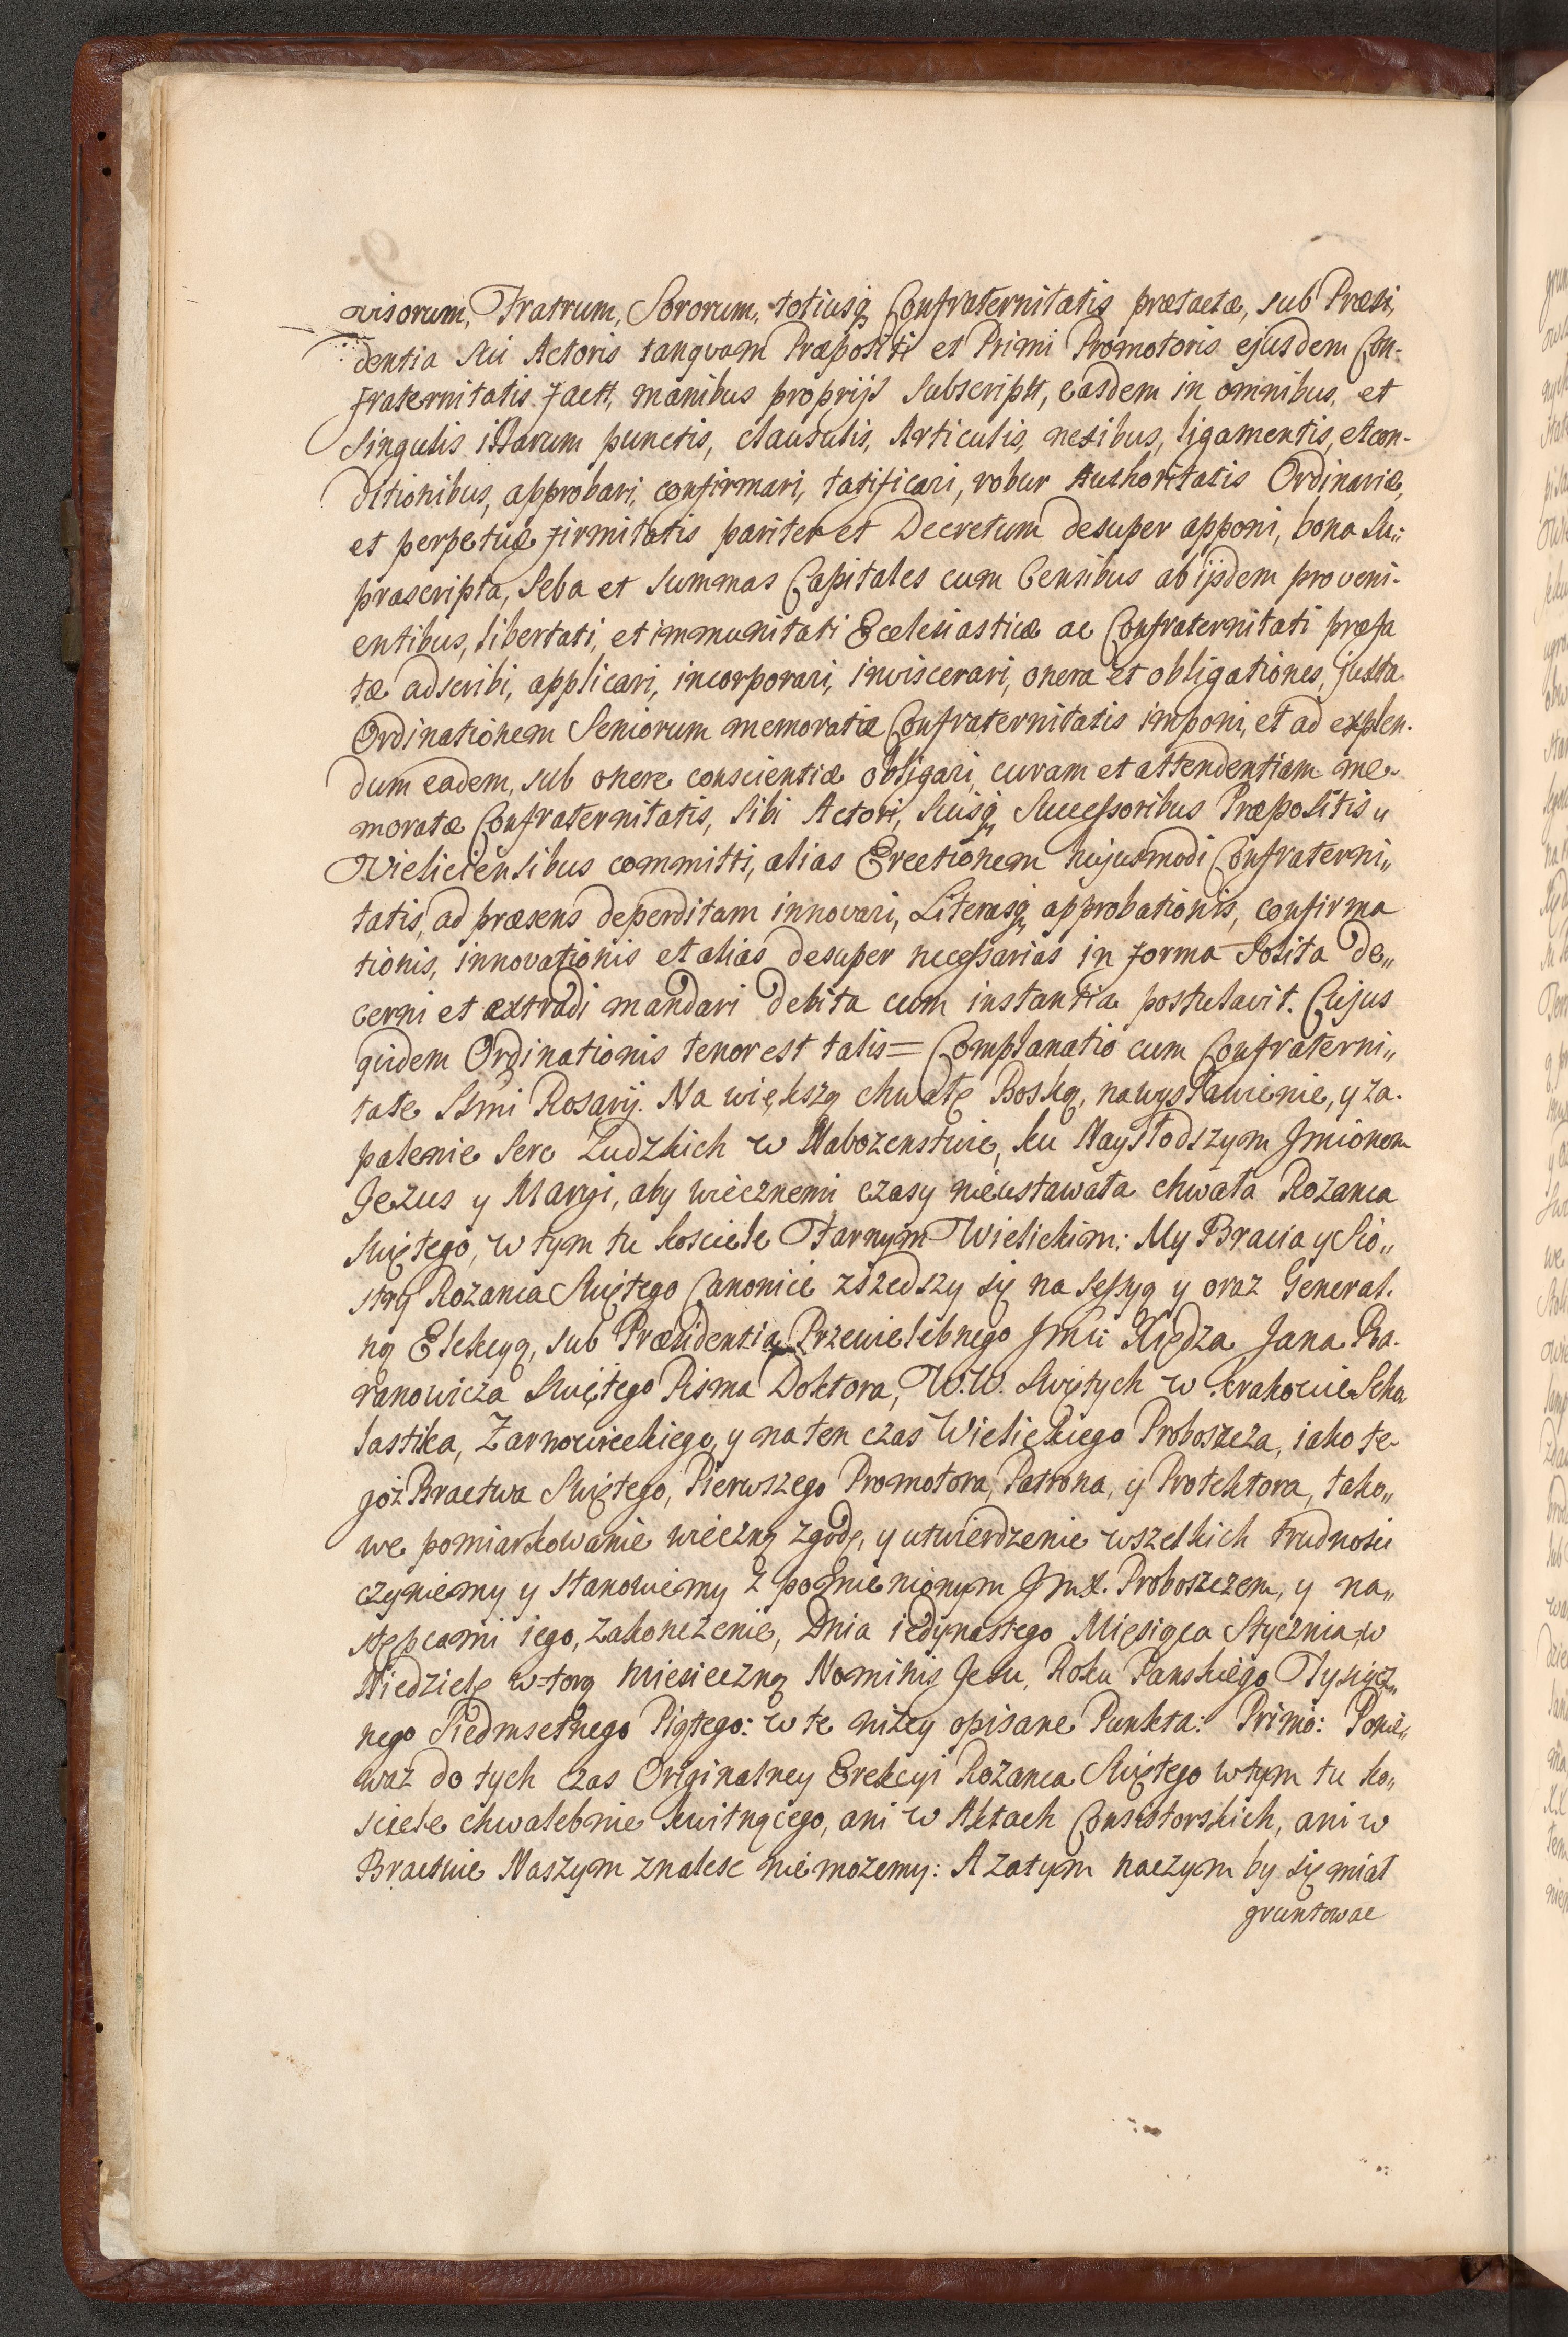 visorum, Fratrum, Sororum, totiusq Confraternitatis prætactæ, sub Præsi,
dentia sui Actoris tanquam Præpositi et Primi Promotoris ejusdem Con-
fraternitatis fact, manibus proprijs subscript, easdem in omnibus, et
singulis illarum punctis, clausulis, Articulis, nexibus, ligamentis, et con-
ditionibus, approbari, confirmari, ratificari, robur Authoritatis Ordinariæ,
et perpetuæ firmitatis pariter et Decretum desuper apponi, bona su„
prascripta, Seba et summas Capitales cum Censibus ab ijsdem proveni-
entibus, libertati, et immunitati Ecclesiasticæ ac Confraternitati præfa
tæ adscribi, applicari, incorporari, inviscerari, onera et obligationes, juxta
Ordinationem Seniorum memoratæ Confraternitatis imponi, et ad explen-
dum eadem, sub onere conscientiæ obligari, curam et attendentiam me-
moratæ Confraternitatis, sibi Actori, suisq Successoribus Præpositis
Vieliciensibus committi, alias Erectionem hujusmodi Confraterni„
tatis, ad præsens deperditam innovari, Literasq approbationis, confirma
tionis, innovationis et alias desuper necessarias in forma solita de„
cerni et extradi mandari debita cum instantia postulavit. Cujus
quidem Ordinationis tenor est talis = Complanatio cum Confraterni„
tate Ssmi Rosarij. Na większą chwałę Boską, na wysławienie, y za-
palenie serc Ludzkich w Nabozenstwie, ku Naysłodszym Jmionom
Jezus y Maryi, aby wiecznemi czasy nieustawała chwała Rozanca
Swiętego, w tym tu kosciele Farnym Wielickim: My Bracia y Sio„
stry Rozanca Swiętego Canonice zszedszy się na sessyą y oraz General-
ną Elekcyą, sub Præsidentia Przewielebnego Jmci Xiędza Jana Ba-
ranowicza Swiętego Pisma Doktora, W.W. Swiętych w Krakowie Scho
lastika, Zarnowieckiego, y na ten czas Wielickiego Proboszcza, iako te-
goż Bractwa Swiętego, Pierwszego Promotora, Patrona, y Protektora, tako„
we pomiarkowanie wieczną zgodę, y utwierdzenie wszelkich trudnosci
czyniemy y stanowiemy z pomienionym Jmx. Proboszczem, y na„
stępcami iego, zakonczenie, Dnia iedynastego Miesiąca Stycznia, w
Niedzielę w-torą miesieczną Nominis Jesu, Roku Panskiego Tysiącz„
nego Siedmsetnego Piątego: w te niżey opisane Punkta: Primo: Ponie„
waż do tych czas Originalney Erekcyi Rożanca Swiętego w tym tu ko„
sciele chwalebnie kwitnącego, ani w Aktach Consistorskich, ani w
Bractwie Naszym znalesc niemozemy: A zatym naczym by się miał
gruntowac